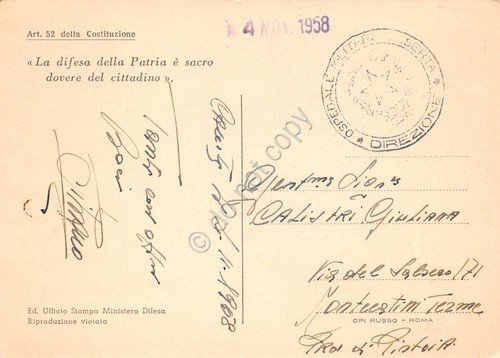 Art. 52 della Costituzione
« La difesa della Patria è sacro
dovere del cittadino ».
4 NOV. 1958
OSPEDALE MILITARE
DIREZIONE
Tanti cari affett
Baci
Gent.ma Sig.na
CALISTRI Giuliana
Via del Salsero 171
Montecatini Terme
Prov di Pistoia
Ed. Ufficio Stampa Ministero Difesa
Riproduzione vietata
OPI RUSSO - ROMA
© do not copy